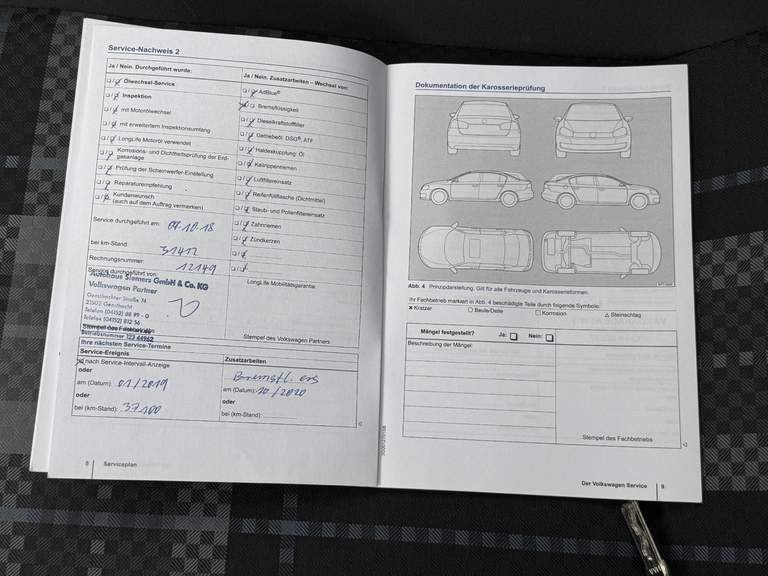 Service-Nachweis 2
Ja / Nein. Durchgeführt wurde:
Ölwechsel-Service
Inspektion
mit Motorölwechsel
mit erweitertem Inspektionsumfang
LongLife Motoröl verwendet
Korrosions- und Dichtheitsprüfung der Erd-
gasanlage
Prüfung der Scheinwerfer-Einstellung
Reparaturempfehlung
Kundenwunsch
(auch auf dem Auftrag vermerken)
Service durchgeführt am:
bei km-Stand: 31412
Rechnungsnummer: 12149
Service durchgeführt von:
Autohaus Siemers GmbH & Co. KG
Volkswagen Partner
Geesthachter Straße 74
21502 Geesthacht
Telefon (04152) 88 99 - 0
Telefax (04152) 812 56
Ja / Nein. Zusatzarbeiten – Wechsel von:
AdBlue®
Bremsflüssigkeit
Dieselkraftstofffilter
Getriebeöl: DSG®, ATF
Haldexkupplung: Öl
Keilrippenriemen
Luftfiltereinsatz
Reifenfüllflasche (Dichtmittel)
Staub- und Pollenfiltereinsatz
Zahnriemen
Zündkerzen
LongLife Mobilitätsgarantie:
Stempel des Volkswagen Partners
Ihre nächsten Service-Termine
Service-Ereignis
nach Service-Intervall-Anzeige
oder
am (Datum): 01/2019
oder
bei (km-Stand): 37100
Zusatzarbeiten
am (Datum): 10/2020
oder
bei (km-Stand):
8 Serviceplan
Dokumentation der Karosserieprüfung
Abb. 4 Prinzipdarstellung. Gilt für alle Fahrzeuge und Karosserieformen.
Ihr Fachbetrieb markiert in Abb. 4 beschädigte Teile durch folgende Symbole:
× Kratzer ○ Beule/Delle □ Korrosion △ Steinschlag
Mängel festgestellt? Ja: Nein:
Beschreibung der Mängel:
Stempel des Fachbetriebs
Der Volkswagen Service 9